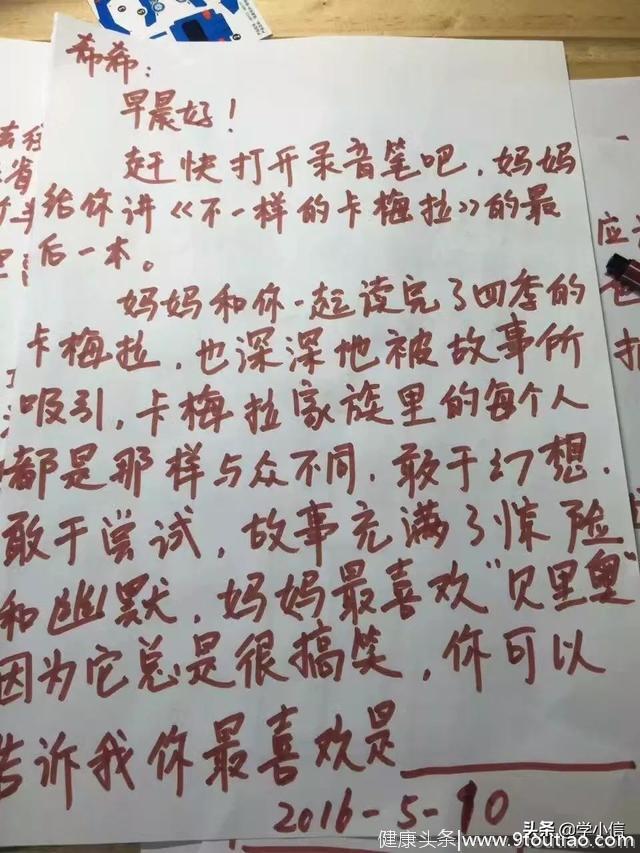 希希：
早晨好！
赶快打开录音笔吧，妈妈
给你讲《不一样的卡梅拉》的最
后一本。
妈妈和你一起读完了四季的
卡梅拉，也深深地被故事所
吸引，卡梅拉家族里的每个人
都是那样与众不同，敢于幻想，
敢于尝试，故事充满了惊险
和幽默，妈妈最喜欢“贝里奥”
因为它总是很搞笑，你可以
告诉我你最喜欢是______
2016-5-10
头条 @学小信
健康头条|www.9toutiao.com